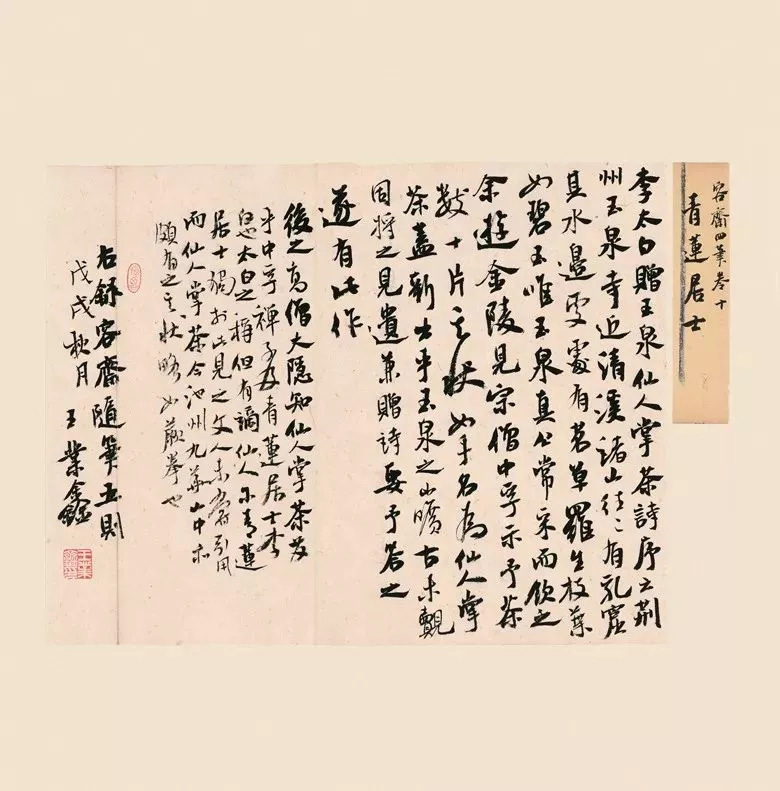 容齋四筆卷十
青蓮居士
李太白贈玉泉仙人掌茶詩序云荊
州玉泉寺近清溪諸山往〻有乳窟
其水邊處處有茗草羅生枝葉
如碧玉唯玉泉真公常采而飲之
余遊金陵見宗僧中孚示予茶
數十片其狀如手名為仙人掌
茶蓋新出乎玉泉之山曠古未覿
因持之見遺兼贈詩要予答之
遂有此作
後之高僧大隱知仙人掌茶發
乎中孚禪子及青蓮居士李
白也太白之稱但有謫仙人爾青蓮
居士獨於此見之文人未嘗引用
而仙人掌茶今池州九華山中亦
頗有之其狀略如蕨拳也
右錄容齋隨筆五則
戊戌秋月 王業鑫